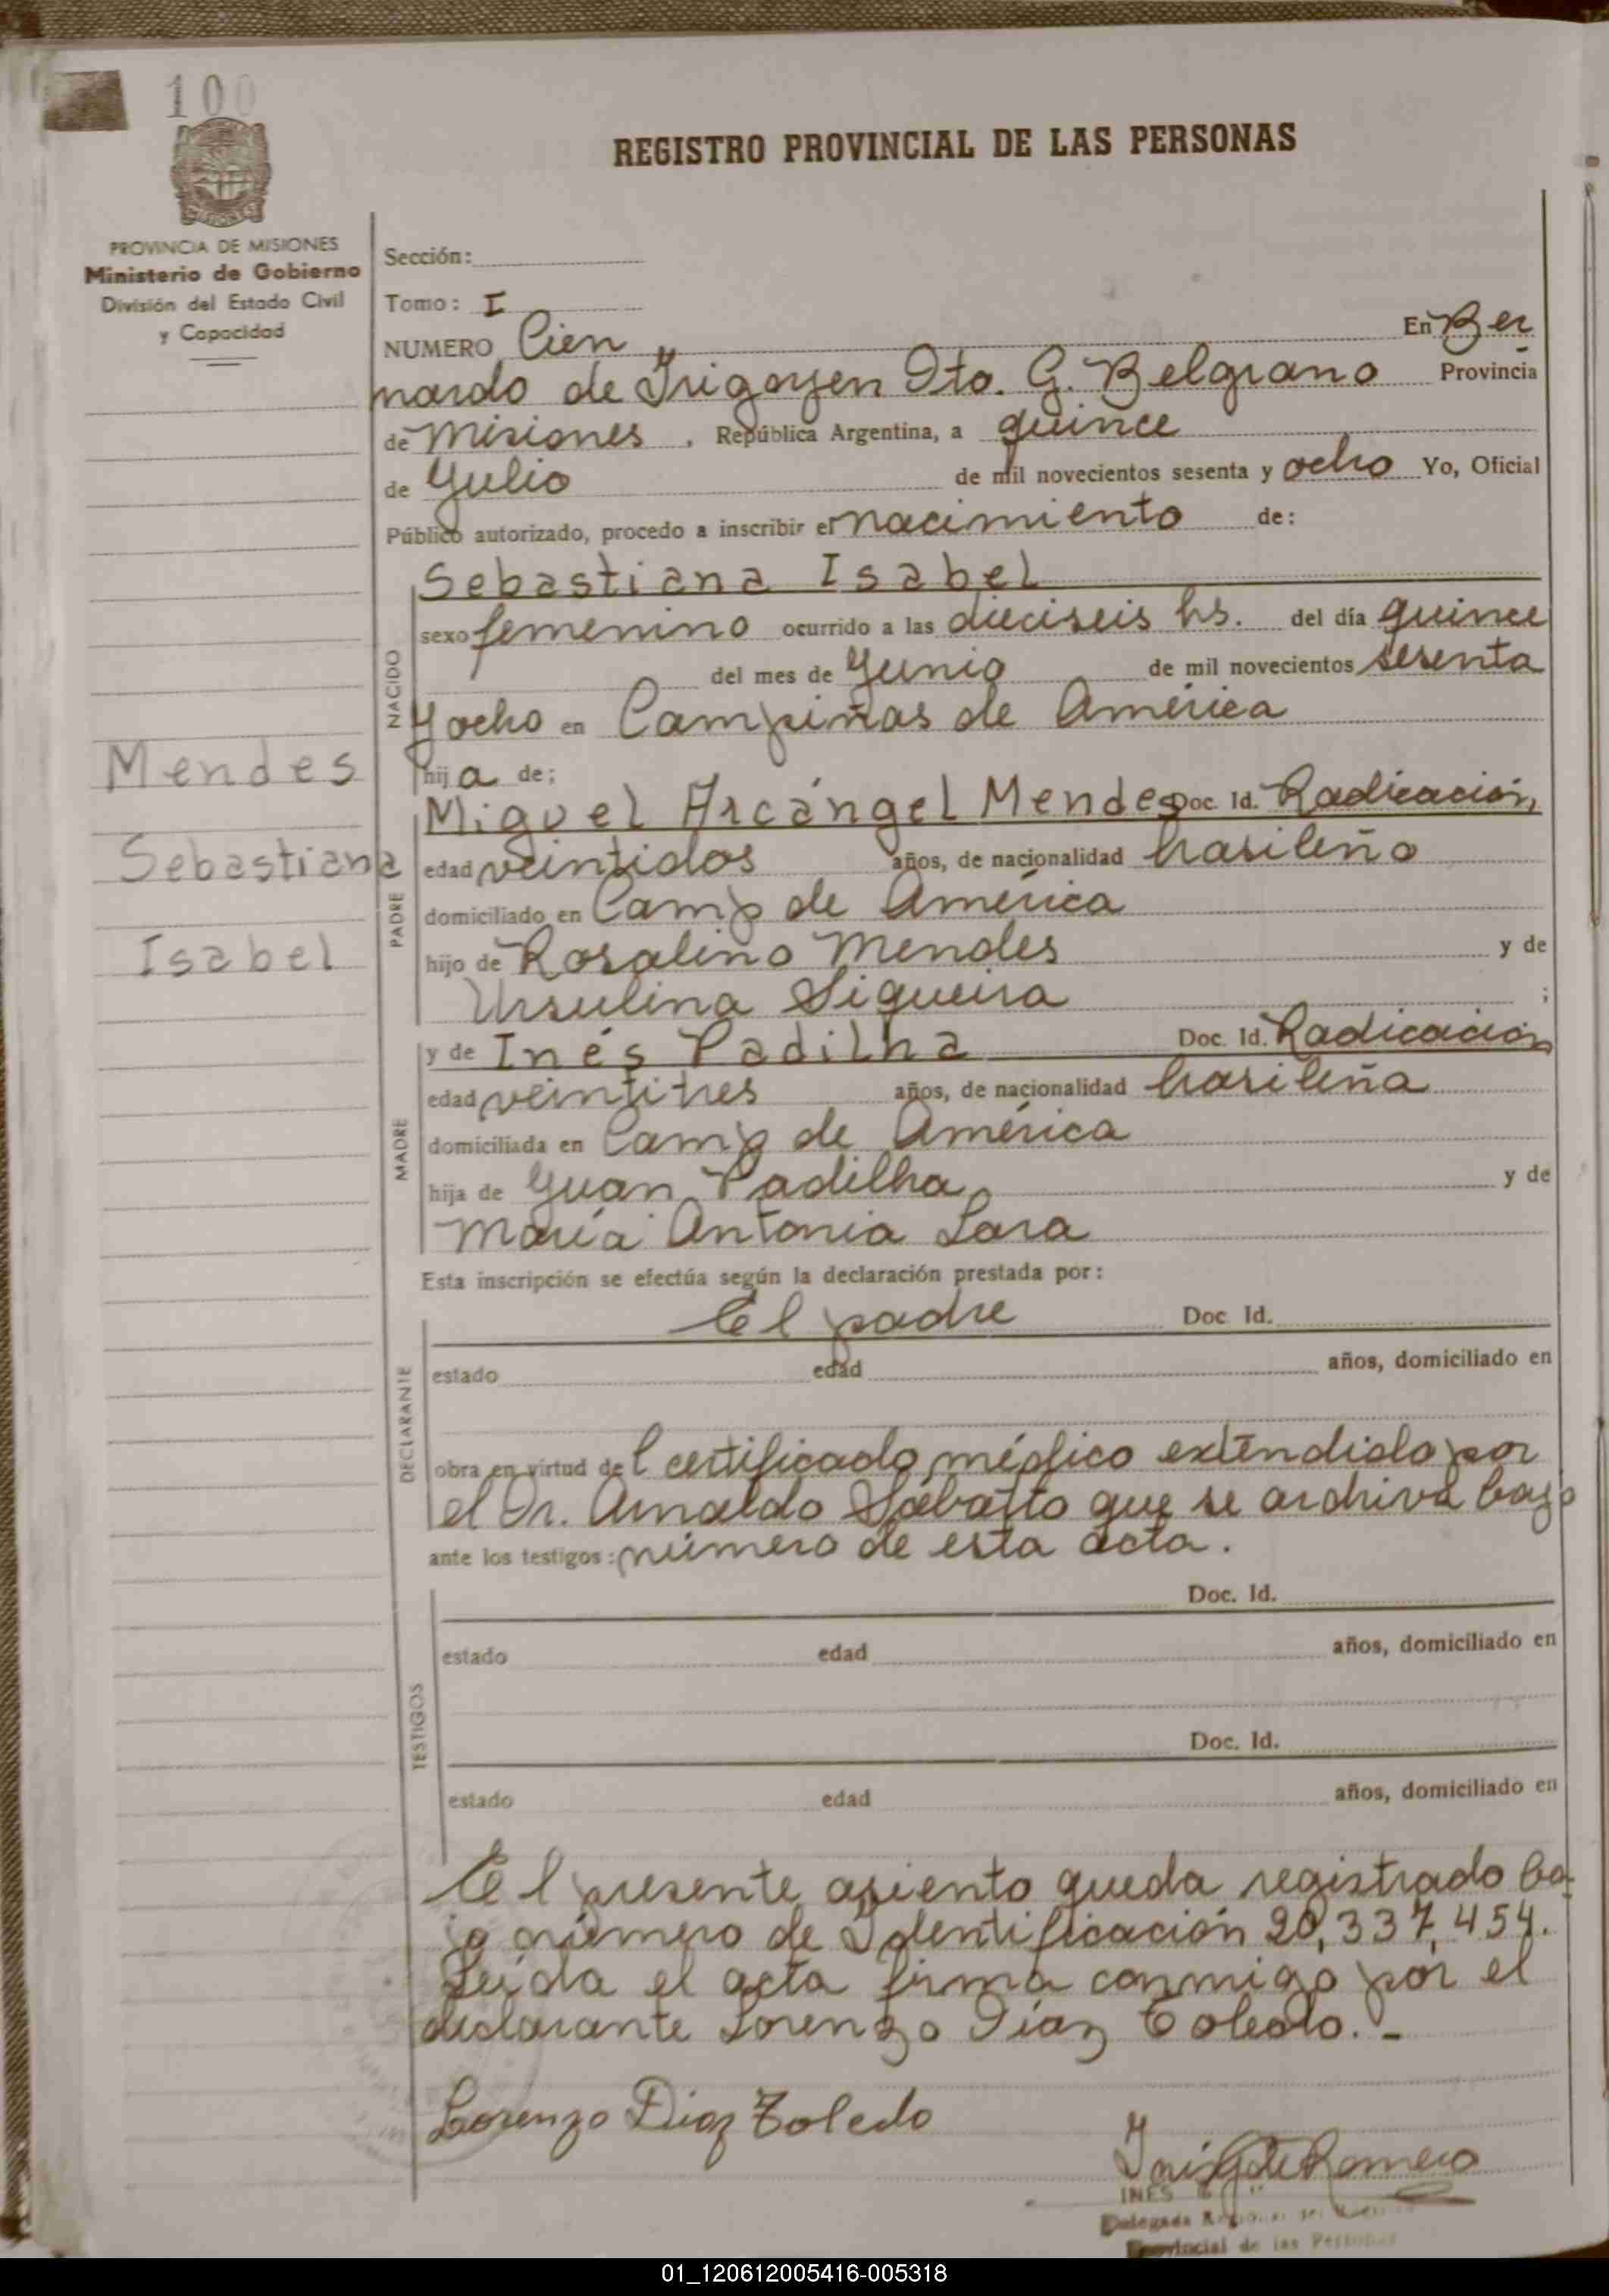 100
REGISTRO PROVINCIAL DE LAS PERSONAS
PROVINCIA DE MISIONES
Ministerio de Gobierno
División del Estado Civil
y Capacidad
Sección:
Tomo: I
NUMERO Cien En Ber
nardo de Irigoyen Dto. G. Belgrano Provincia
de Misiones, República Argentina, a quince
de Julio de mil novecientos sesenta y ocho Yo, Oficial
Público autorizado, procedo a inscribir el nacimiento de:
Sebastiana Isabel
sexo femenino ocurrido a las dieciseis hs. del día quince
del mes de Junio de mil novecientos sesenta
y ocho en Campiñas de América
hija de;
Miguel Arcángel Mendes Doc. Id. Radicación,
edad veintidos años, de nacionalidad brasileño
domiciliado en Camp de América
hijo de Rosalino Mendes y de
Ursulina Siqueira ;
y de Inés Padilha Doc. Id. Radicación
edad veintitres años, de nacionalidad brasileña
domiciliada en Camp de América
hija de Juan Padilha y de
María Antonia Lara
Esta inscripción se efectúa según la declaración prestada por:
El padre Doc Id.
estado edad años, domiciliado en
obra en virtud del certificado médico extendido por
el Dr. Arnaldo Sabatto que se archiva bajo
ante los testigos: número de esta acta.
Doc. Id.
estado edad años, domiciliado en
Doc. Id.
estado edad años, domiciliado en
El presente asiento queda registrado ba-
jo número de Identificación 20,337,454.
Leida el acta firma conmigo por el
declarante Lorenzo Díaz Toledo. -
Lorenzo Diaz Toledo
Inés G de Romero
INES
Delegada
Provincial de las Personas
NACIDO
PADRE
MADRE
DECLARANTE
TESTIGOS
Mendes
Sebastiana
Isabel
01_120612005416-005318